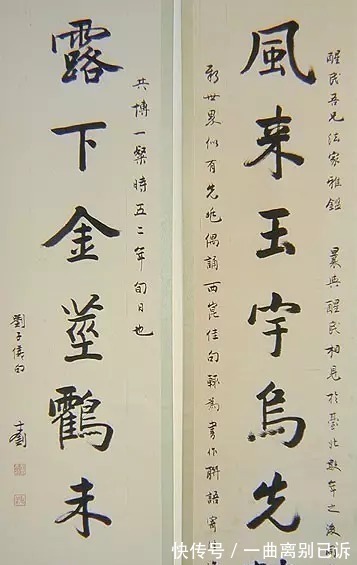 醒民吾兄法家雅鑑 曩與醒民相見於臺北數年之後
風来玉宇烏先
新世界似有先兆偶誦西崑佳句輒為書作聯語寄
共博一粲時五二年旬日也
露下金莖鸖未
劉子侯
快传号／一曲离别已诉